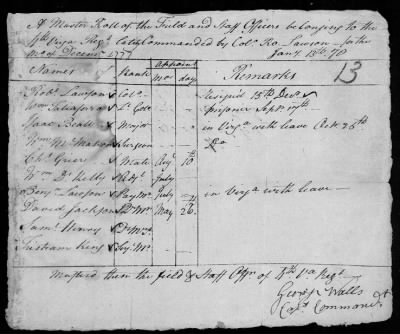 A Muster Roll of the Field and Staff Officers belonging to the
4th Virga Regt Lately Commanded by Colo Ro. Lawson for the
Mo. of Decemr 1777 Jany 13th 78
13
Names Rank Appoint Mo. day Remarks
Robt Lawson Colo. - - resigned 15th Decr
Wm Taliaferro Lt Colo - - prisoner Septr
Isaac Beall Major - - in Virga with leave Octr 25th
Wm Surgeon - - Do
Chs Greer Mate Augt 10th
Wm D. Kelly Adjt July
Benj. Lawson PayMr July in Virga with leave
David Jackson Mr May 26
Saml Henry - -
King - -
Musterd then the field & Staff Offrs of 4th Va Regt
George Walls
Capt Commandt